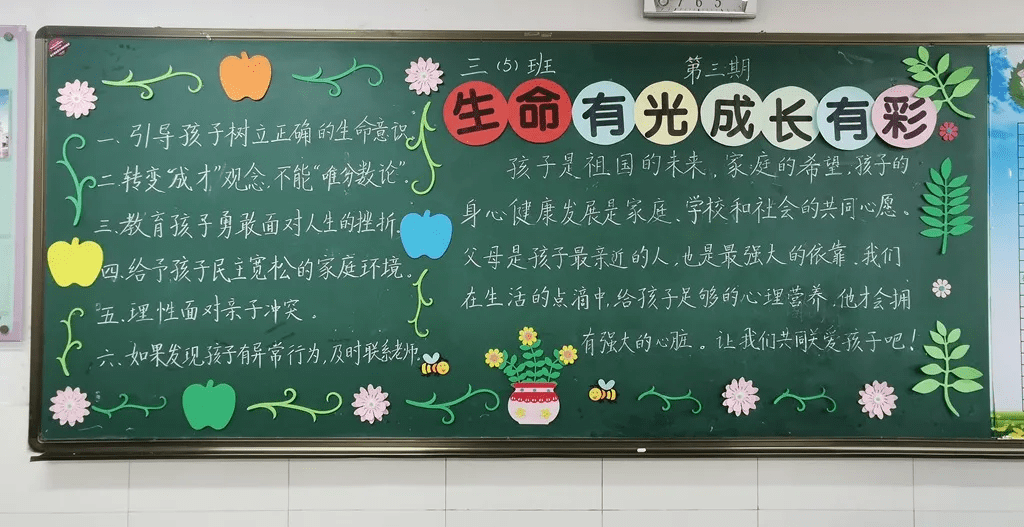 三（5）班
第三期
生命有光成长有彩
一、引导孩子树立正确的生命意识。
二、转变"成才"观念,不能"唯分数论"。
三、教育孩子勇敢面对人生的挫折。
四、给予孩子民主宽松的家庭环境。
五、理性面对亲子冲突。
六、如果发现孩子有异常行为,及时联系老师。
孩子是祖国的未来，家庭的希望，孩子的
身心健康发展是家庭、学校和社会的共同心愿。
父母是孩子最亲近的人,也是最强大的依靠，我们
在生活的点滴中，给孩子足够的心理营养，他才会拥
有强大的心脏。让我们共同关爱孩子吧！